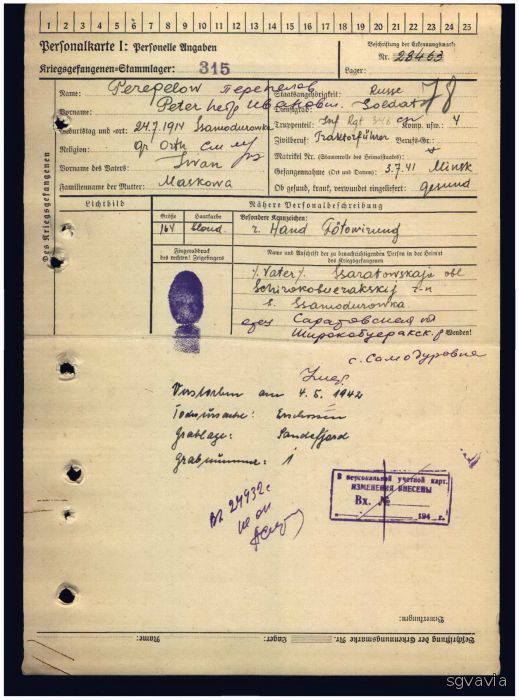 1 2 3 4 5 6 7 8 9 10 11 12 13 14 15 16 17 18 19 20 21 22 23 24 25
Personalkarte I: Personelle Angaben
Beschriftung der Erkennungsmarke
Nr. 28463
Kriegsgefangenen-Stammlager: 315
Lager:
Des Kriegsgefangenen
Name: Perepelow Перепелов
Staatsangehörigkeit: Russe
78
Vorname: Peter Петр Иванович
Dienstgrad: Soldat
Geburtstag und -ort: 24.7.1914 Ssamodurowka
Truppenteil: Inf. Rgt 348 Komp. usw.: 4
Religion: gr. Orth
Zivilberuf: Traktorführer Berufs-Gr.:
Vorname des Vaters: Iwan
Matrikel Nr. (Stammrolle des Heimatstaates):
Gefangennahme (Ort und Datum): 3.7.41 Minsk
Familienname der Mutter: Maskowa
Ob gesund, krank, verwundet eingeliefert: gesund
Lichtbild
Nähere Personalbeschreibung
Größe
Haarfarbe
Besondere Kennzeichen:
164
blond
r. Hand
Fingerabdruck
des rechten! Zeigefingers
Name und Anschrift der zu benachrichtigenden Person in der Heimat
des Kriegsgefangenen
/. Vater/. Ssaratowskaja obl
Schirokobuerakskij r-n
s. Ssamodurowka
отец Саратовская обл
Широкобуеракск. р
Wenden!
с. Самодуровка
Умер.
Verstorben am 4.5.1942
Todesursache: Erschossen
Grablage: Sandefjord
Grabnummer: 1
Вх 24932с
В персональной учетной карт.
ИЗМЕНЕНИЯ ВНЕСЕНЫ
Вх. №
194 г.
Bemerkungen:
Beschriftung der Erkennungsmarke Nr. Lager: Name:
sgvavia